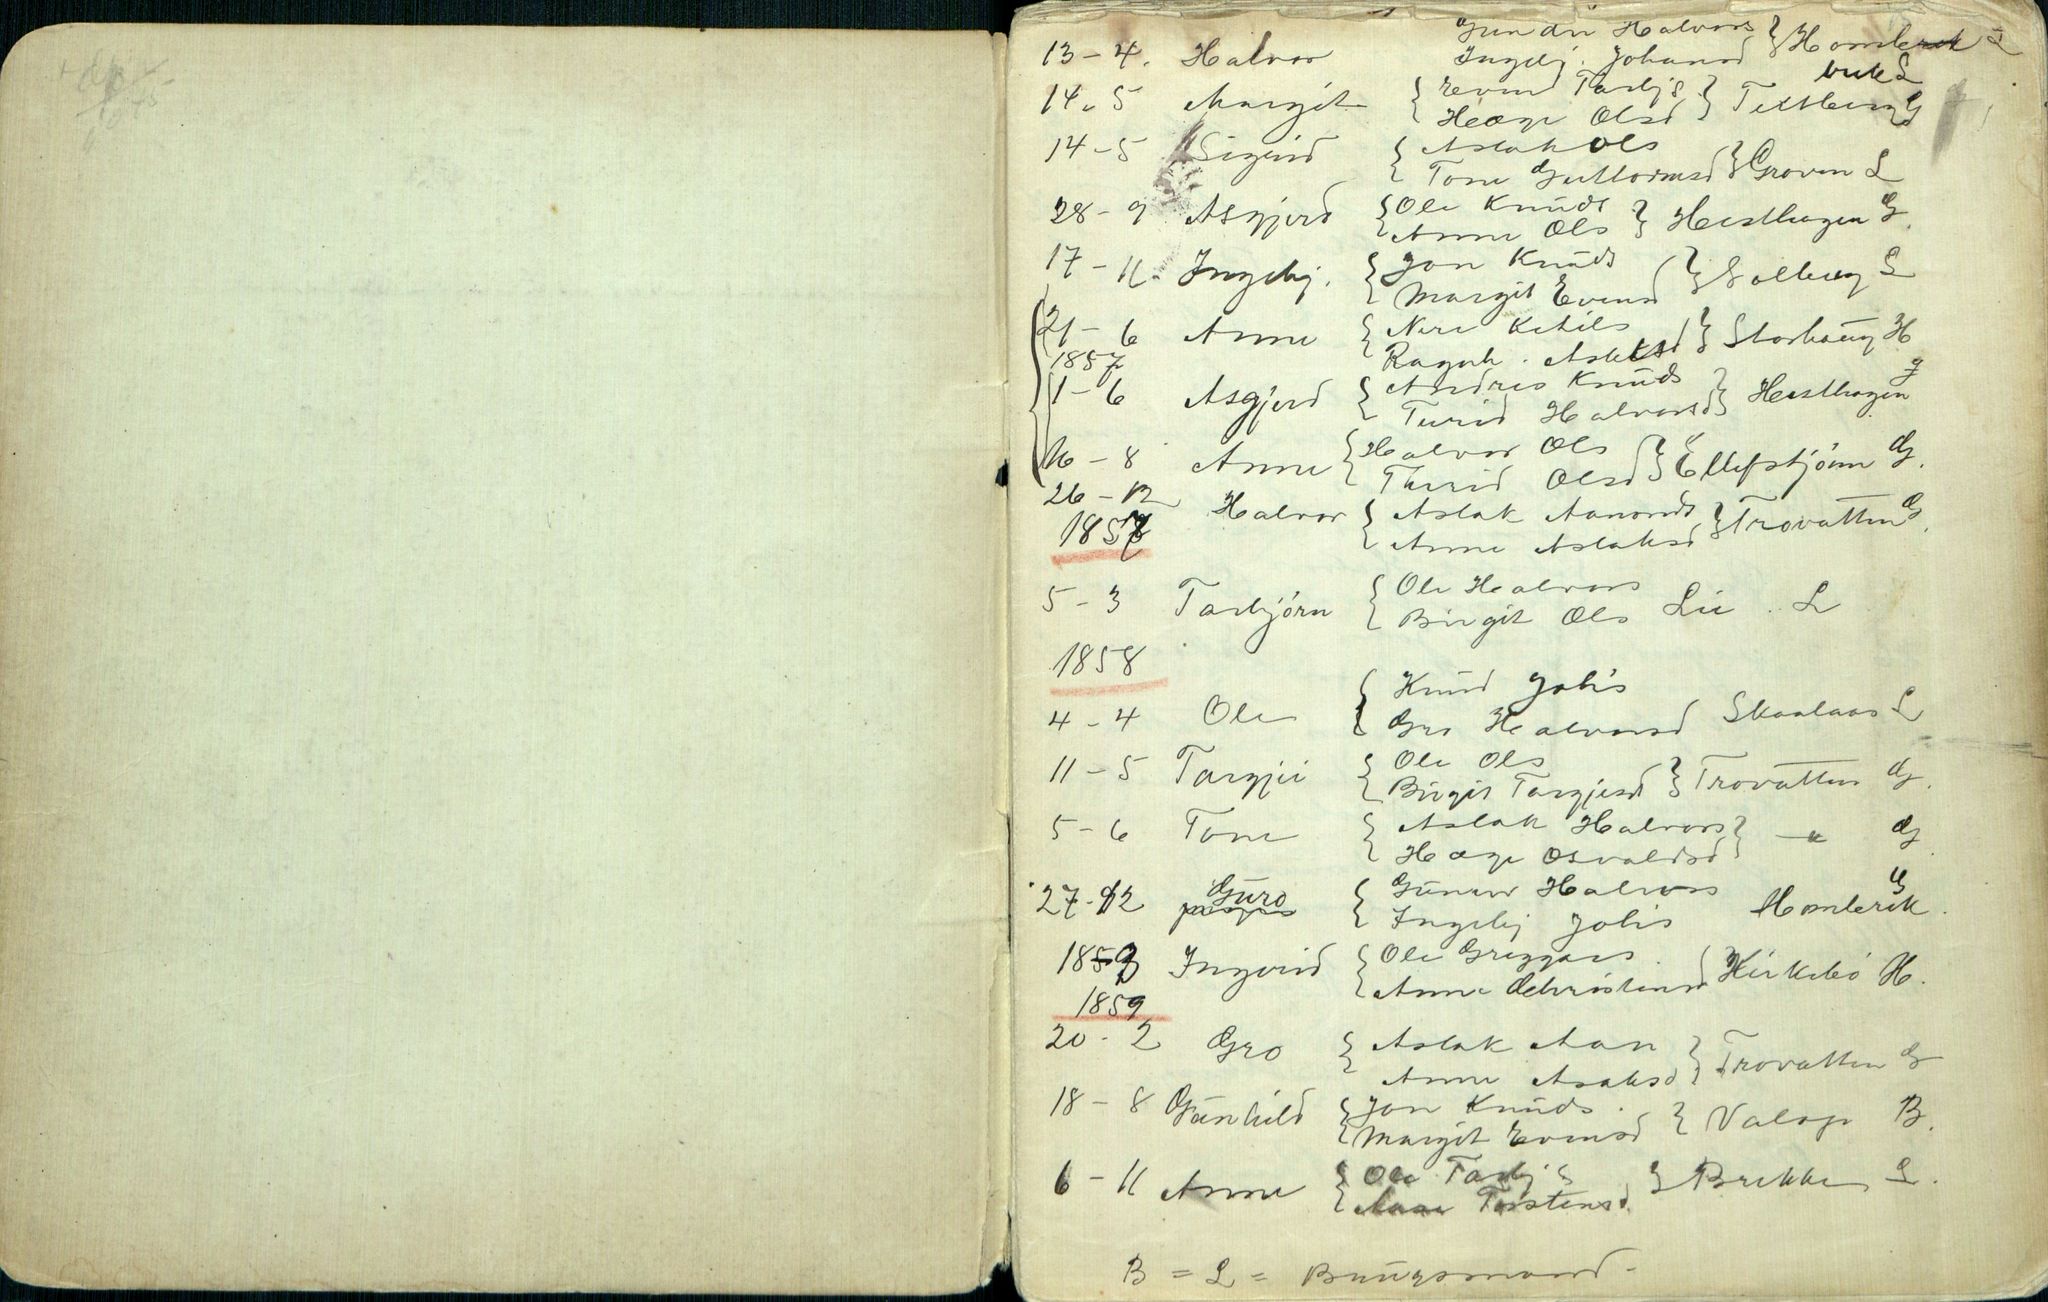 Gunder Halvors
13-4. Halvor Ingebj. Johansd } Homlerek L
buk L
14. 5 Margit { Evind Tarbjs } Teksleberg G
Hæge Olsd
14-5 Sigrid { Aslak Ols
Tone Guttormsd } Groven L
28-9 Asgjerd { Ole Knuds
Anne Ols } Hesthagen G.
17-11. Ingebj. { Jon Knuds
Margit Evensd } Solberg L
21-6 Anne { Neri Ketils
1857 Ragnh. Aslaksd } Storhaug H
1-6 Asgjerd { Andres Knuds
Turid Halvorsd } Hesthagen G
16-8 Anne { Halvor Ols
Thurid Olsd } Ellefstjönn G.
26-12 Halvor { Aslak Aanonds
1857 Anne Aslaksd } Trovatten G.
5-3 Tarbjörn { Ole Halvors
Birgit Ols Lie . L
1858
Knud Johs
4-4 Ole { Gro Halvorsd Skaalaas L
11-5 Targjei { Ole Ols
Birgit Targjeisd } Trovatten G.
5-6 Tone { Aslak Halvors
Hæge Osvaldsd } -"- G
27-12 Guro { Gunder Halvors
Ingebj Johs Homlerek G.
1859 Ingerid { Ole Greggars.
Anne Christensd } Kirkebö H.
1859
20-2 Gro { Aslak Aan
Anne Asaksd } Trovatten G
18-8 Gunhild { Jon Knuds.
Margit Evensd } Valage B.
6-11 Anne { Ole Tarbj s
Aase Torstensd. } Brekke L.
B = L = Bruugsmand-